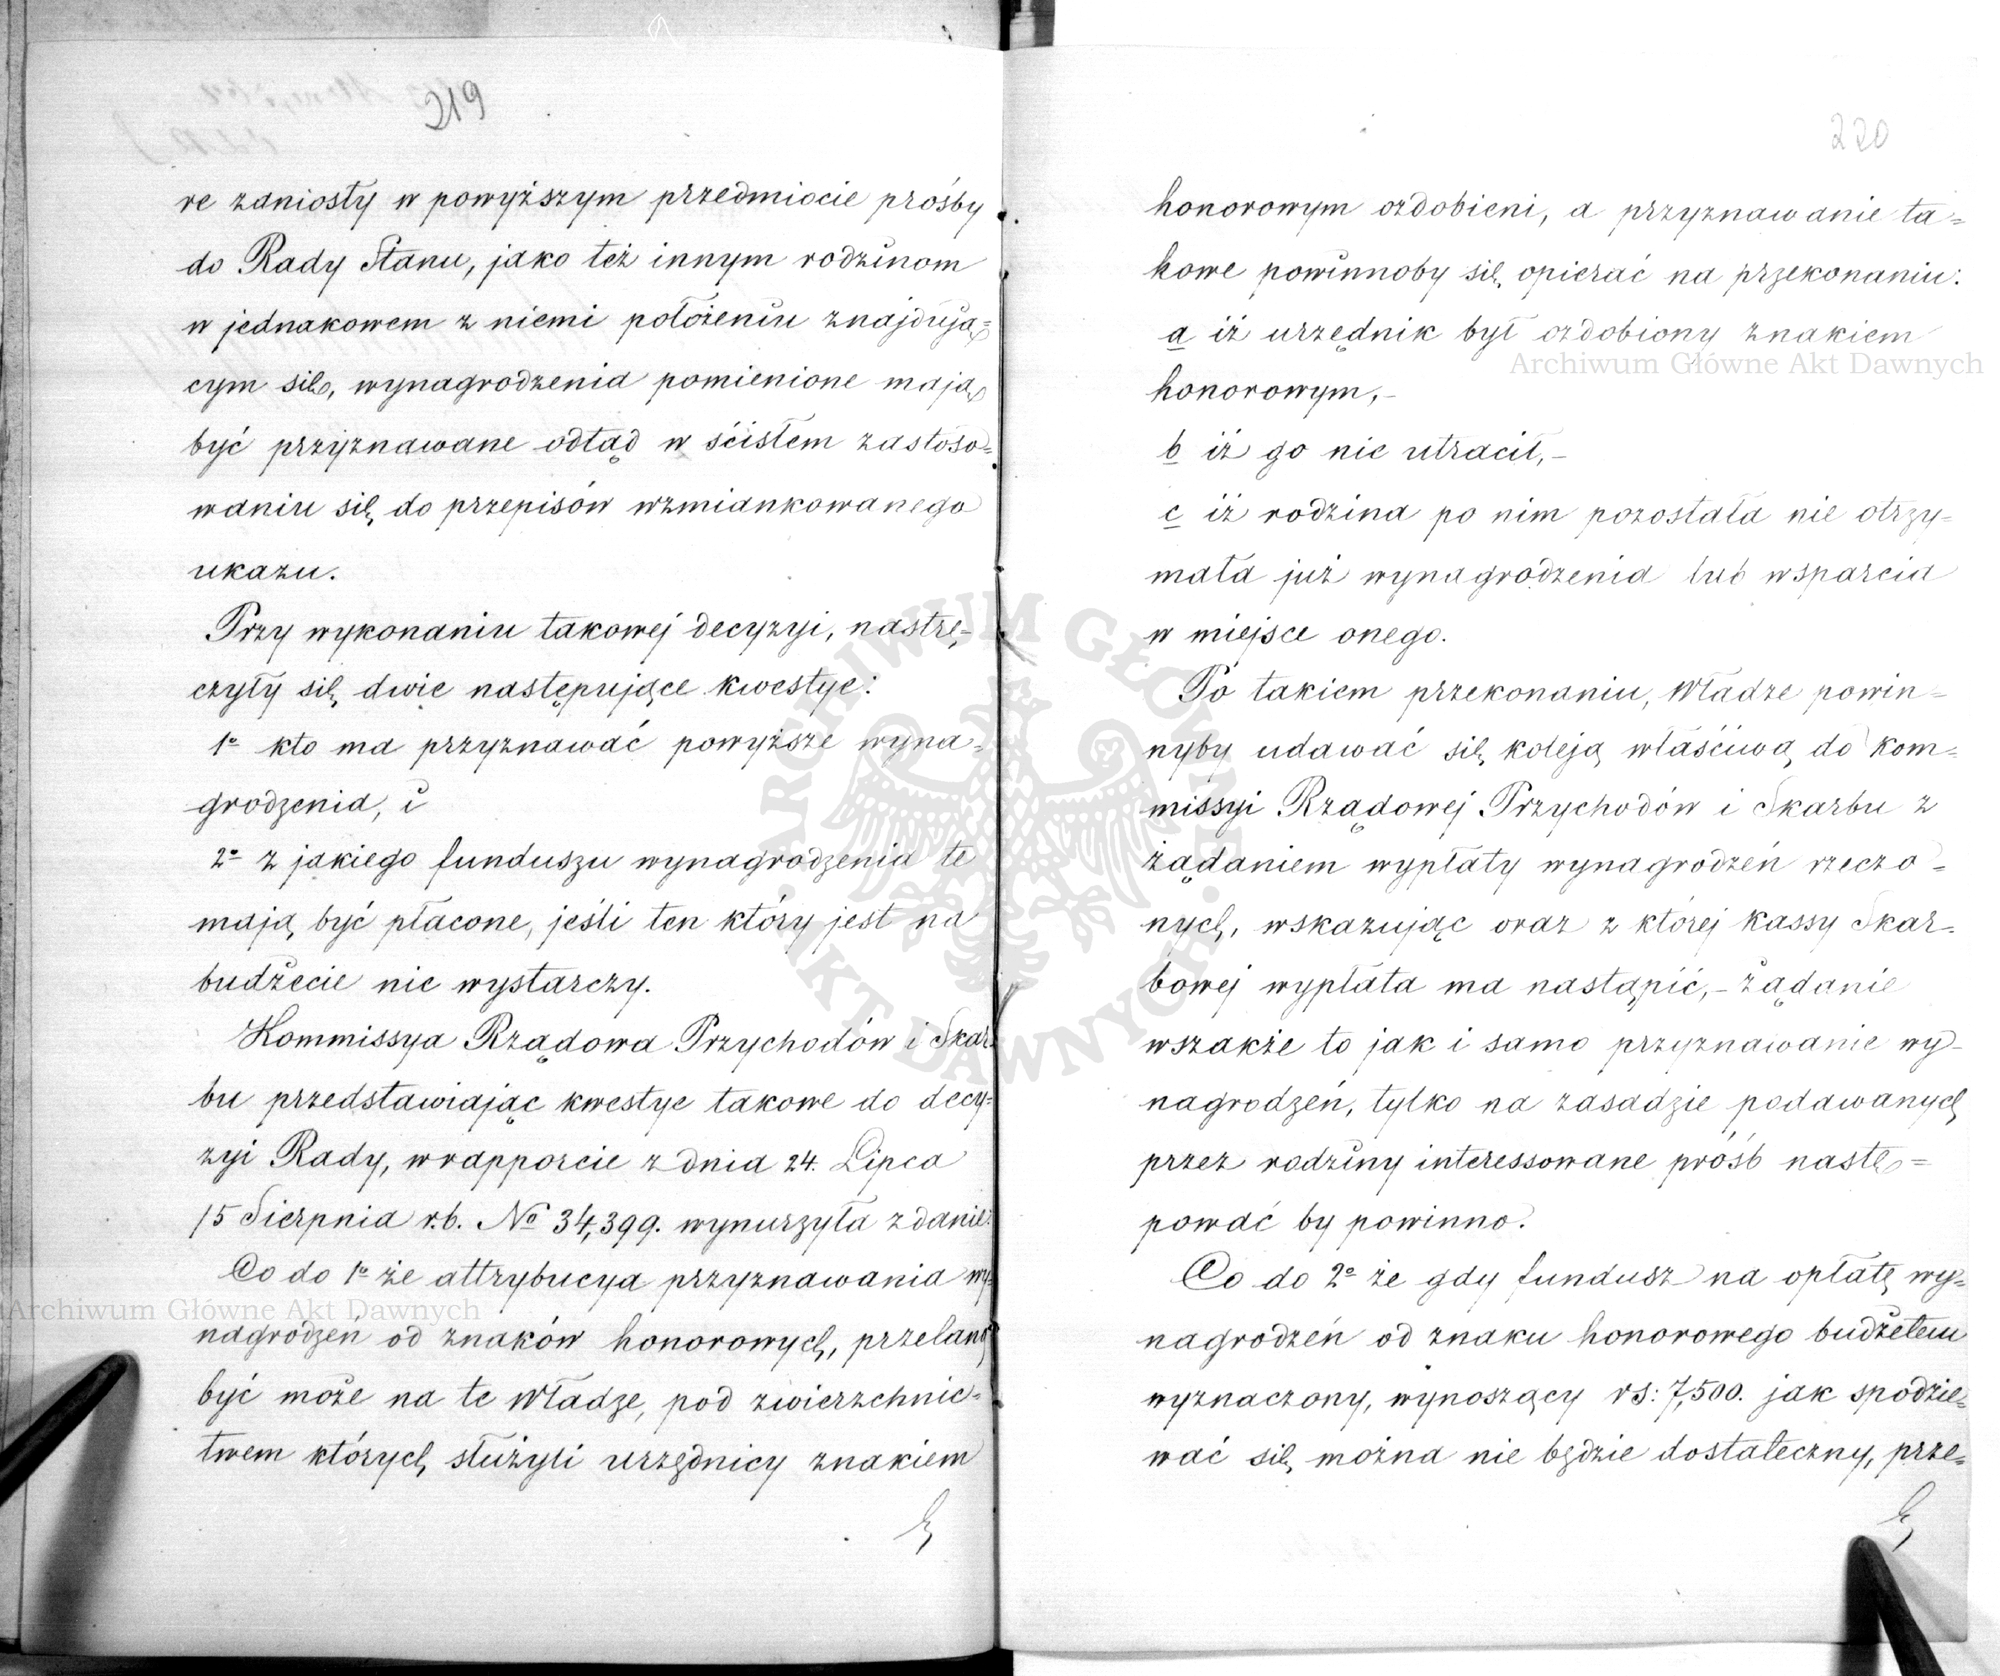 219
re zaniosły w powyższym przedmiocie prośby
do Rady Stanu, jako też innym rodzinom
w jednakowem z niemi położeniu znajdują=
cym się, wynagrodzenia pomienione mają
być przyznawane odtąd w ścisłem zastoso=
waniu się do przepisów wzmiankowanego
ukazu.
Przy wykonaniu takowej decyzyi, nastrę=
czyły się dwie następujące kwestye:
1o kto ma przyznawać powyższe wyna=
grodzenia, i
2o z jakiego funduszu wynagrodzenia te
mają być płacone, jeśli ten który jest na
budżecie nie wystarczy.
Kommissya Rządowa Przychodów i Skar=
bu przedstawiając kwestye takowe do decy=
zyi Rady, w rapporcie z dnia 24. Lipca
/5 Sierpnia r.b. No 34,399. wynurzyła zdanie:
Co do 1o że attrybucya przyznawania wy=
nagrodzeń od znaków honorowych, przelaną
być może na te Władze, pod zwierzchnic=
twem których służyli urzędnicy znakiem
220
honorowym ozdobieni, a przyznawanie ta=
kowe powinnoby się opierać na przekonaniu:
a iż urzędnik był ozdobiony znakiem
honorowym,-
b iż go nie utracił,-
c iż rodzina po nim pozostała nie otrzy=
mała już wynagrodzenia lub wsparcia
w miejsce onego.
Po takiem przekonaniu, Władze powin=
nyby udawać się koleją właściwą do Kom=
missyi Rządowej Przychodów i Skarbu z
żądaniem wypłaty wynagrodzeń rzeczo=
nych, wskazując oraz z której kassy Skar=
bowej wypłata ma nastąpić,- żądanie
wszakże to jak i samo przyznawanie wy=
nagrodzeń, tylko na zasadzie podawanych
przez rodziny interessowane próśb nastę=
pować by powinno.
Co do 2o że gdy fundusz na opłatę wy=
nagrodzeń od znaku honorowego budżetem
wyznaczony, wynoszący rs: 7,500. jak spodzie=
wać się można nie będzie dostateczny, prze=
Archiwum Główne Akt Dawnych
Archiwum Główne Akt Dawnych
ARCHIWUM GŁÓWNE AKT DAWNYCH